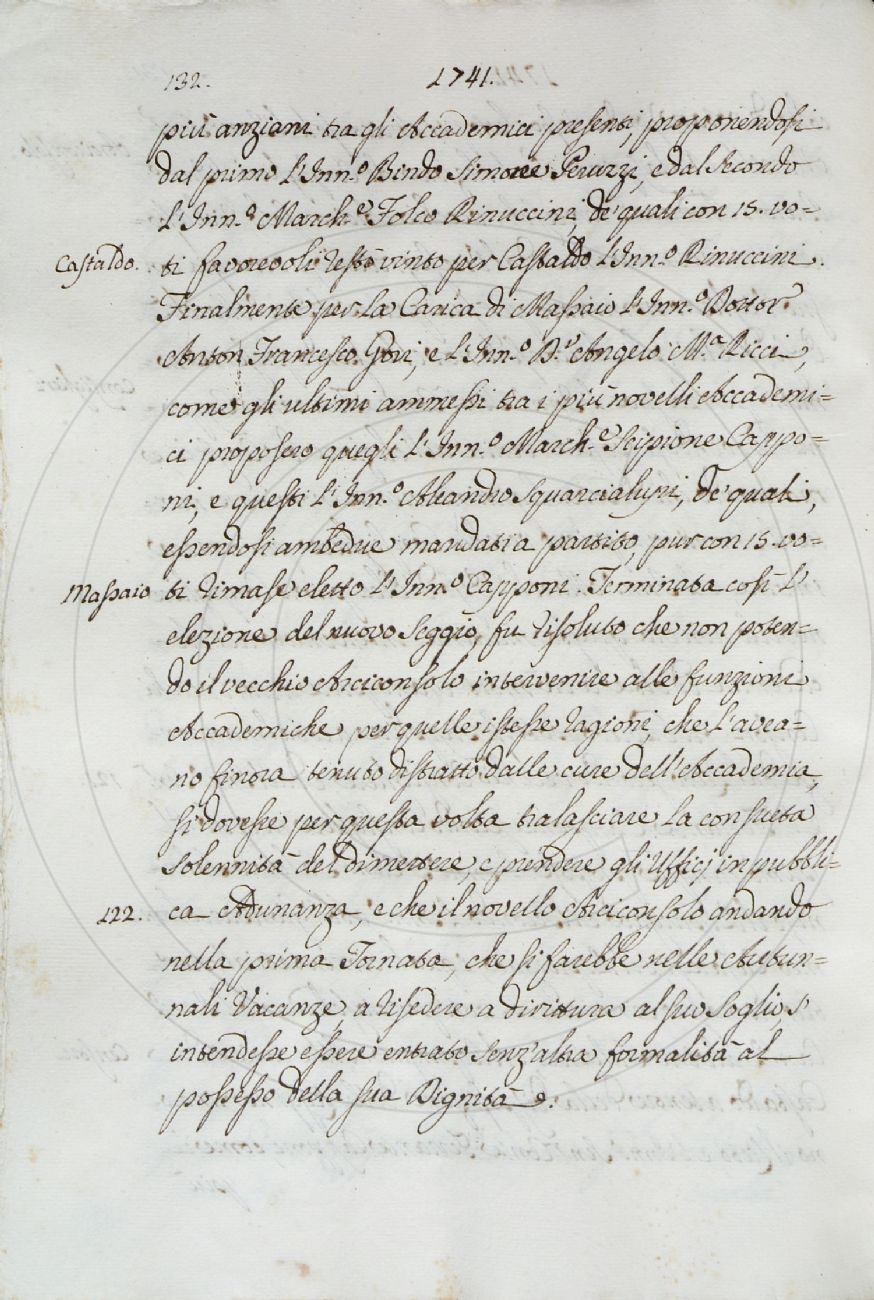 132. 1741.
più anziani tra gli Accademici presenti, proponendosi
dal primo l'Inn.º Bindo Simone Peruzzi, e dal secondo
l'Inn.º March.e Folco Rinuccini, de' quali con 15. vo=
Castaldo. ti favorevoli restò vinto per Castaldo l'Inn.º Rinuccini.
Finalmente per la Carica di Massaio l'Inn.º Dottor
Anton Francesco Gori, e l'Inn.º D.r Angelo M.a Ricci,
come gli ultimi ammessi tra i più novelli Accademi=
ci proposero quegli l'Inn.º March.e Scipione Cappo=
ni, e questi l'Inn.º Aleandro Squarcialupi, de' quali,
essendosi ambedue mandati a partito, pur con 15. vo=
Massaio ti rimase eletto l'Inn.º Capponi. Terminata così l'
elezione del nuovo Seggio, fu risoluto che non poten=
do il vecchio Arciconsolo intervenire alle funzioni
Accademiche per quelle istesse ragioni, che l'avea=
no finora tenuto distratto dalle cure dell'Accademia,
si dovesse per questa volta tralasciare la consueta
solennità del dimettere, e prendere gli Ufficj in pubbli=
122. ca Adunanza, e che il novello Arciconsolo andando
nella prima Tornata, che si farebbe nelle Autun=
nali Vacanze a risedere a dirittura al suo Soglio, s'
intendesse essere entrato senz'altra formalità al
possesso della sua Dignità.